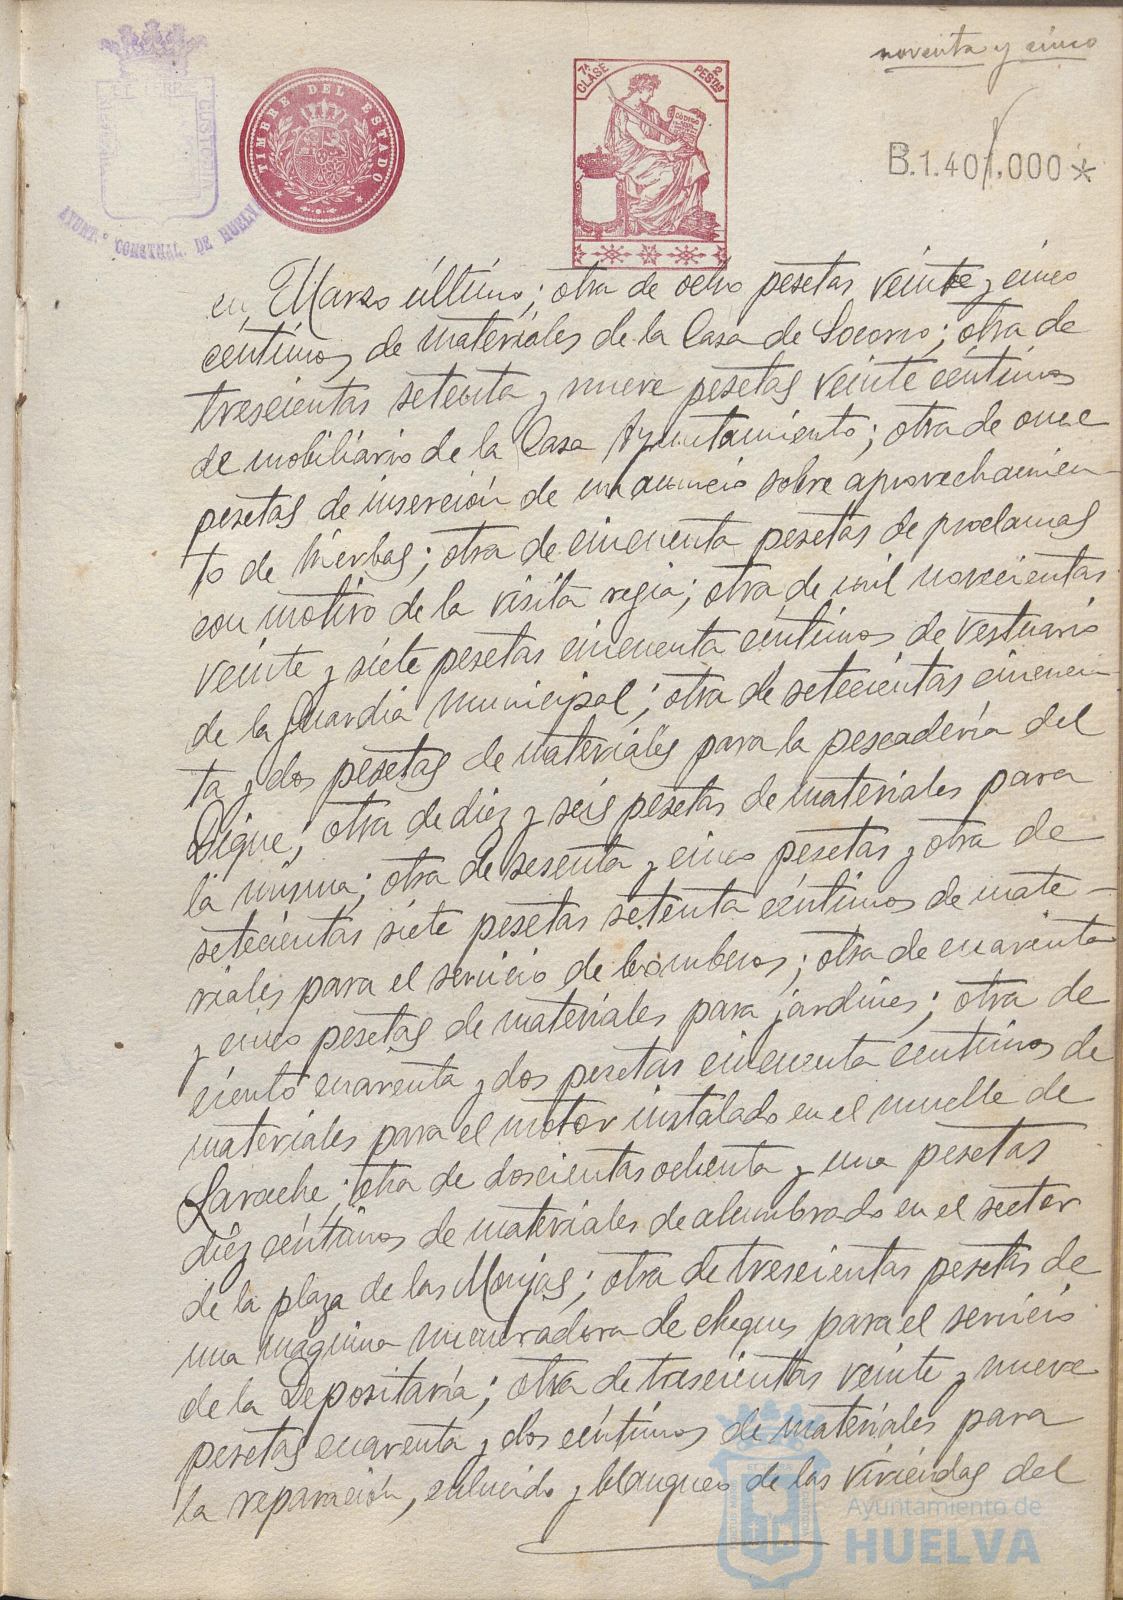 noventa y cinco
TIMBRE DEL ESTADO
7ª CLASE
2 PESTAS
CÓDIGO
B.1.401.000*
AYUNT.º CONSTNAL. DE HUELVA
en Marzo último; otra de ocho pesetas veinte y cinco
céntimos de materiales de la Casa de Socorro; otra de
trescientas setenta y nueve pesetas veinte céntimos
de mobiliario de la Casa Ayuntamiento; otra de once
pesetas de inserción de un anuncio sobre aprovechamien-
to de hierbas; otra de cincuenta pesetas de proclamas
con motivo de la visita regia; otra de mil novecientas
veinte y siete pesetas cincuenta céntimos de vestuario
de la Guardia Municipal; otra de setecientas cincuen-
ta y dos pesetas de materiales para la pescadería del
Dique; otra de diez y seis pesetas de materiales para
la misma; otra de sesenta y cinco pesetas y otra de
setecientas siete pesetas setenta céntimos de mate-
riales para el servicio de bomberos; otra de cuarenta
y cinco pesetas de materiales para jardines; otra de
ciento cuarenta y dos pesetas cincuenta céntimos de
materiales para el motor instalado en el muelle de
Larache; otra de doscientas ochenta y una pesetas
diez céntimos de materiales de alumbrado en el sector
de la plaza de las Monjas; otra de trescientas pesetas de
una máquina de cheques para el servicio
de la Depositaría; otra de trescientas veinte y nueve
pesetas cuarenta y dos céntimos de materiales para
la reparación, enlucido y blanqueo de las viviendas del
Ayuntamiento de
HUELVA